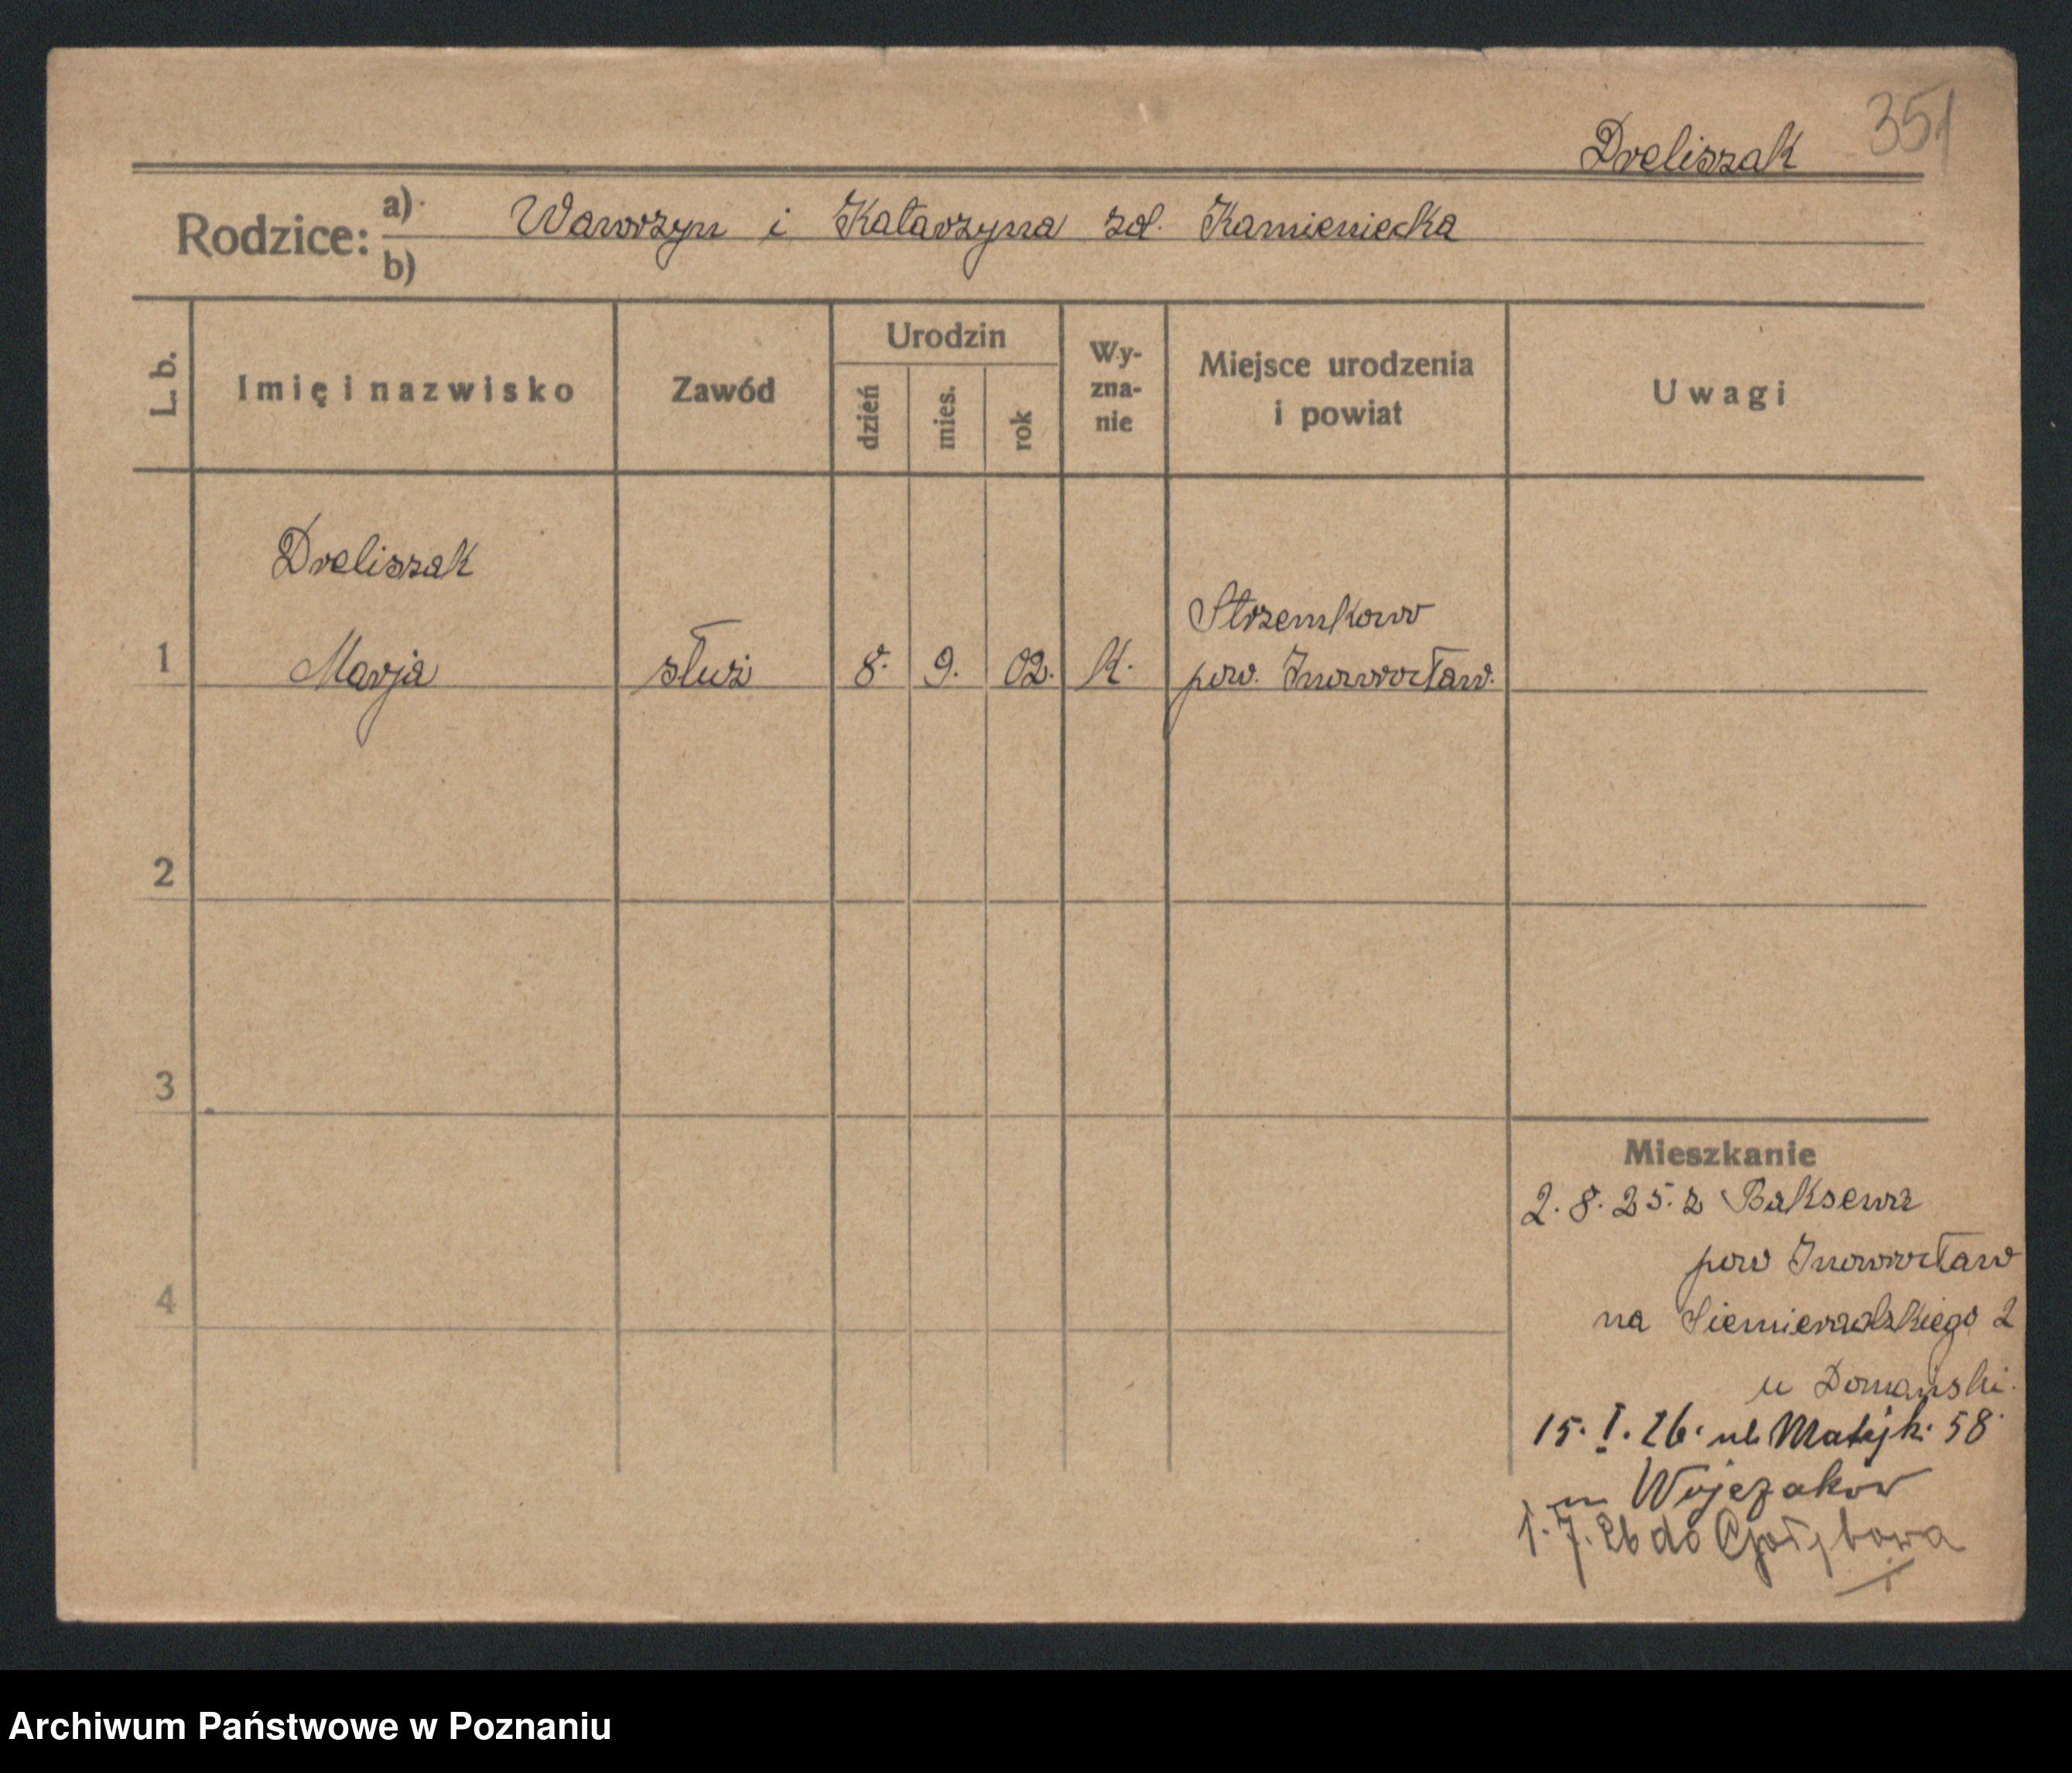 Dreliszak 351
Rodzice: a) Wawrzyn i Katarzyna zd. Kamieniecka
b)
L. b.
Imię i nazwisko
Zawód
Urodzin
dzień
mies.
rok
Wy-
zna-
nie
Miejsce urodzenia
i powiat
Uwagi
Dreliszak
Strzemkowo
1 Marja służ 8. 9. 02. K. pow. Inowrocław.
2
3
Mieszkanie
2. 8. 25. z
pow Inowrocław
4
na Siemieradzkiego 2
u Domański.
15. I. 26. ul. Matejk. 58
Wojczaków
1. 7. 26 do
Archiwum Państwowe w Poznaniu